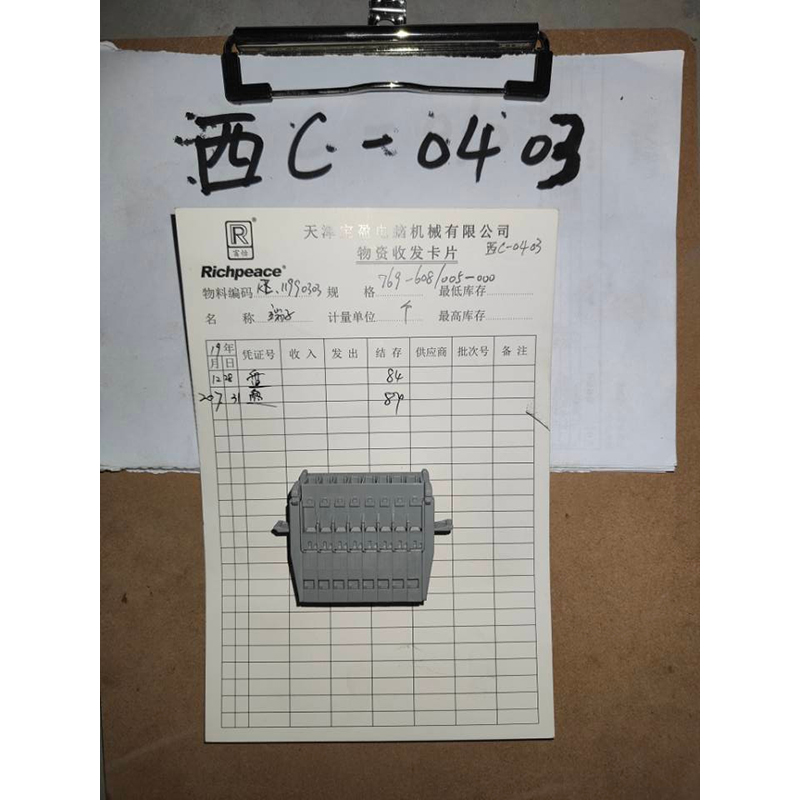 西C-0403
R
富怡
Richpeace®
天津宝盈电脑机械有限公司
物资收发卡片
西C-0403
物料编码 11990303 规 格 769-608/005-000 最低库存
名 称 端子 计量单位 个 最高库存
19年 凭证号 收入 发出 结存 供应商 批次号 备注
月 日
12 28 84
207 31 84